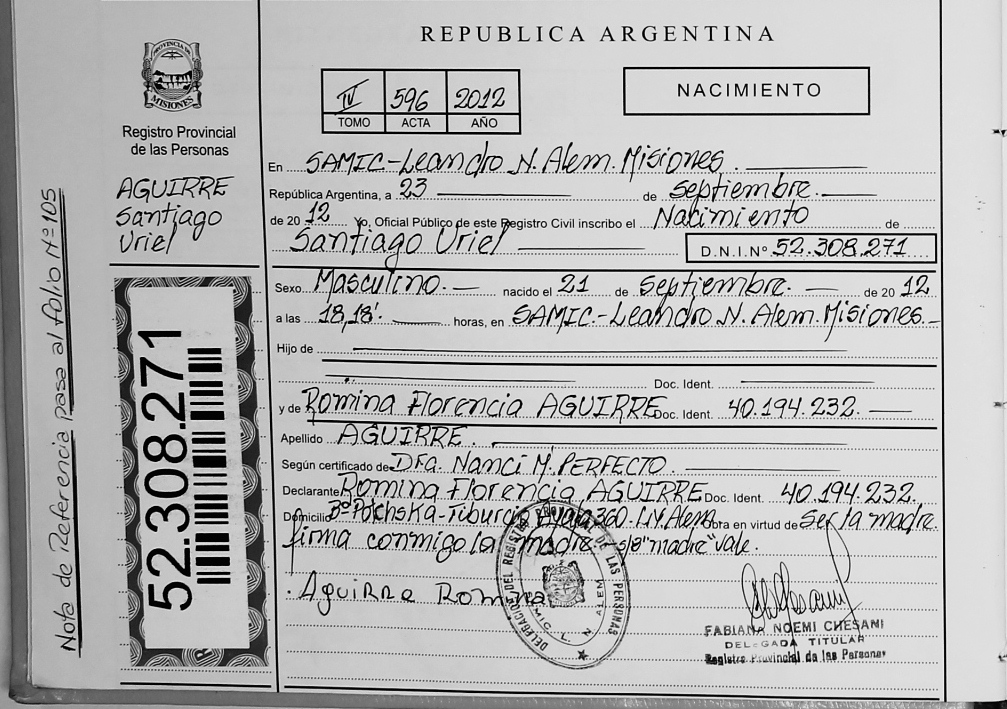 REPUBLICA ARGENTINA
PROVINCIA DE
MISIONES
Registro Provincial
de las Personas
AGUIRRE
Santiago
Uriel
Nota de Referencia pasa al folio Nº 105
52.308.271
IV 596 2012
TOMO ACTA AÑO
NACIMIENTO
En SAMIC-Leandro N. Alem. Misiones
República Argentina, a 23 de septiembre.
de 20 12 Yo, Oficial Público de este Registro Civil inscribo el Nacimiento de
Santiago Uriel D.N.I.Nº 52.308.271
Sexo Masculino. nacido el 21 de septiembre. de 20 12
a las 18,18'. horas, en SAMIC.-Leandro N. Alem. Misiones.
Hijo de
Doc. Ident.
y de Romina Florencia AGUIRRE Doc. Ident. 40.194.232.
Apellido AGUIRRE.
Según certificado de Dra. Nanci M. PERFECTO.
Declarante Romina Florencia AGUIRRE Doc. Ident. 40.194.232.
Domicilio Ayala 360. L.N. Alem obra en virtud de ser la madre.
firma conmigo la madre.-s/8 "madre" vale.
Aguirre Romina
DELEGACION DEL REGISTRO PROV. DE LAS PERSONAS
SAMIC L. N. ALEM
FABIANA NOEMI CHESANI
DELEGADA TITULAR
Registro Provincial de las Personas